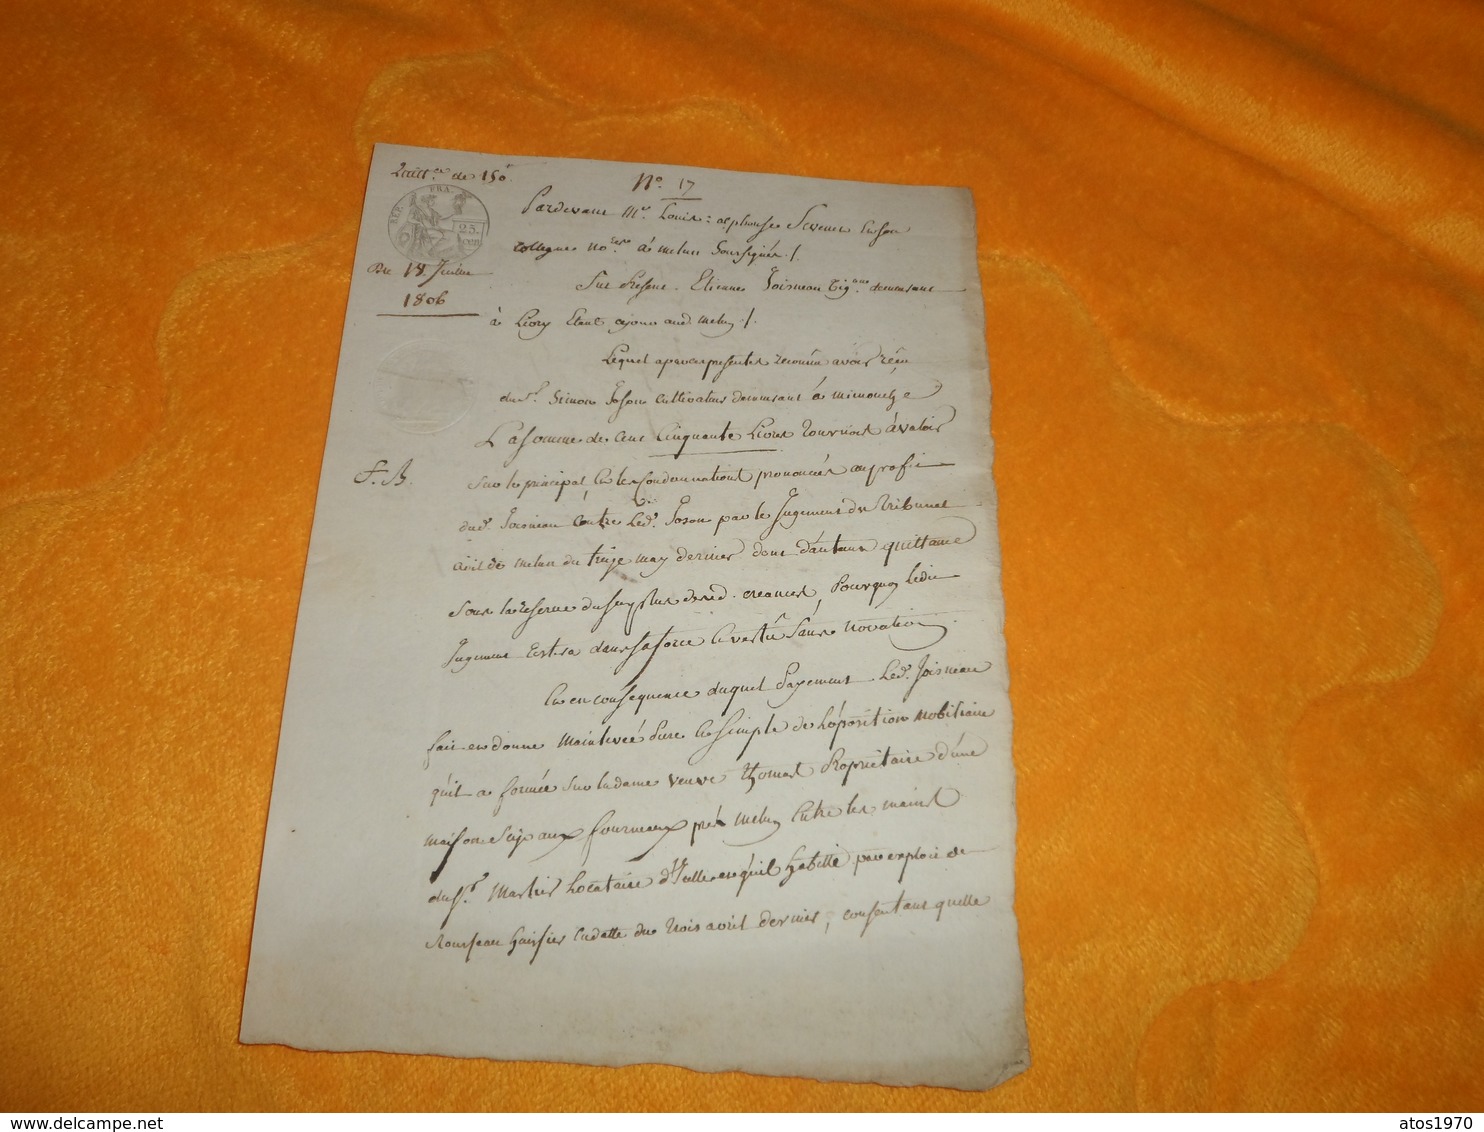 Quitt.ce de 150.lt
N.o 17
REP. FRA.
25. cen
Du 18. Juillet
1806
Pardevant M.e Louis-alphonse et son
collegue no.res à melun soussignés /.
fut present Etienne Joisneau vig.on demeurant
à Livry Etant ajourd aud. melun /.
Lequel a par ces presentes reconnu avoir réçu
du S.r Simon Joson cultivateur demeurant à
La somme de cent Cinquante Livres tournois à valoir
F. B.
Sur le principal, et les Condamnations prononcées au profit
dud. Joisneau contre Led. Joson par le Jugement du Tribunal
civil de melun du treize may dernier dont d'autant quittance
sous la reserve du surplus desd. creances, Pourquoy ledit
Jugement Restera dans sa force et vertu sans novation.
Et en consequence duquel Payement Led. Joisneau
fait et donne Mainlevée pure et simple de L'oposition Mobiliaire
qu'il a formée sur la dame veuve thomas Propriétaire d'une
maison sise aux fourneaux près Melun Entre les mains
du S.r Martin Locataire d'Icelle et qu'il habitte par exploit de
Rousseau huissier en datte du trois avril dernier, consentant quelle
atos1970